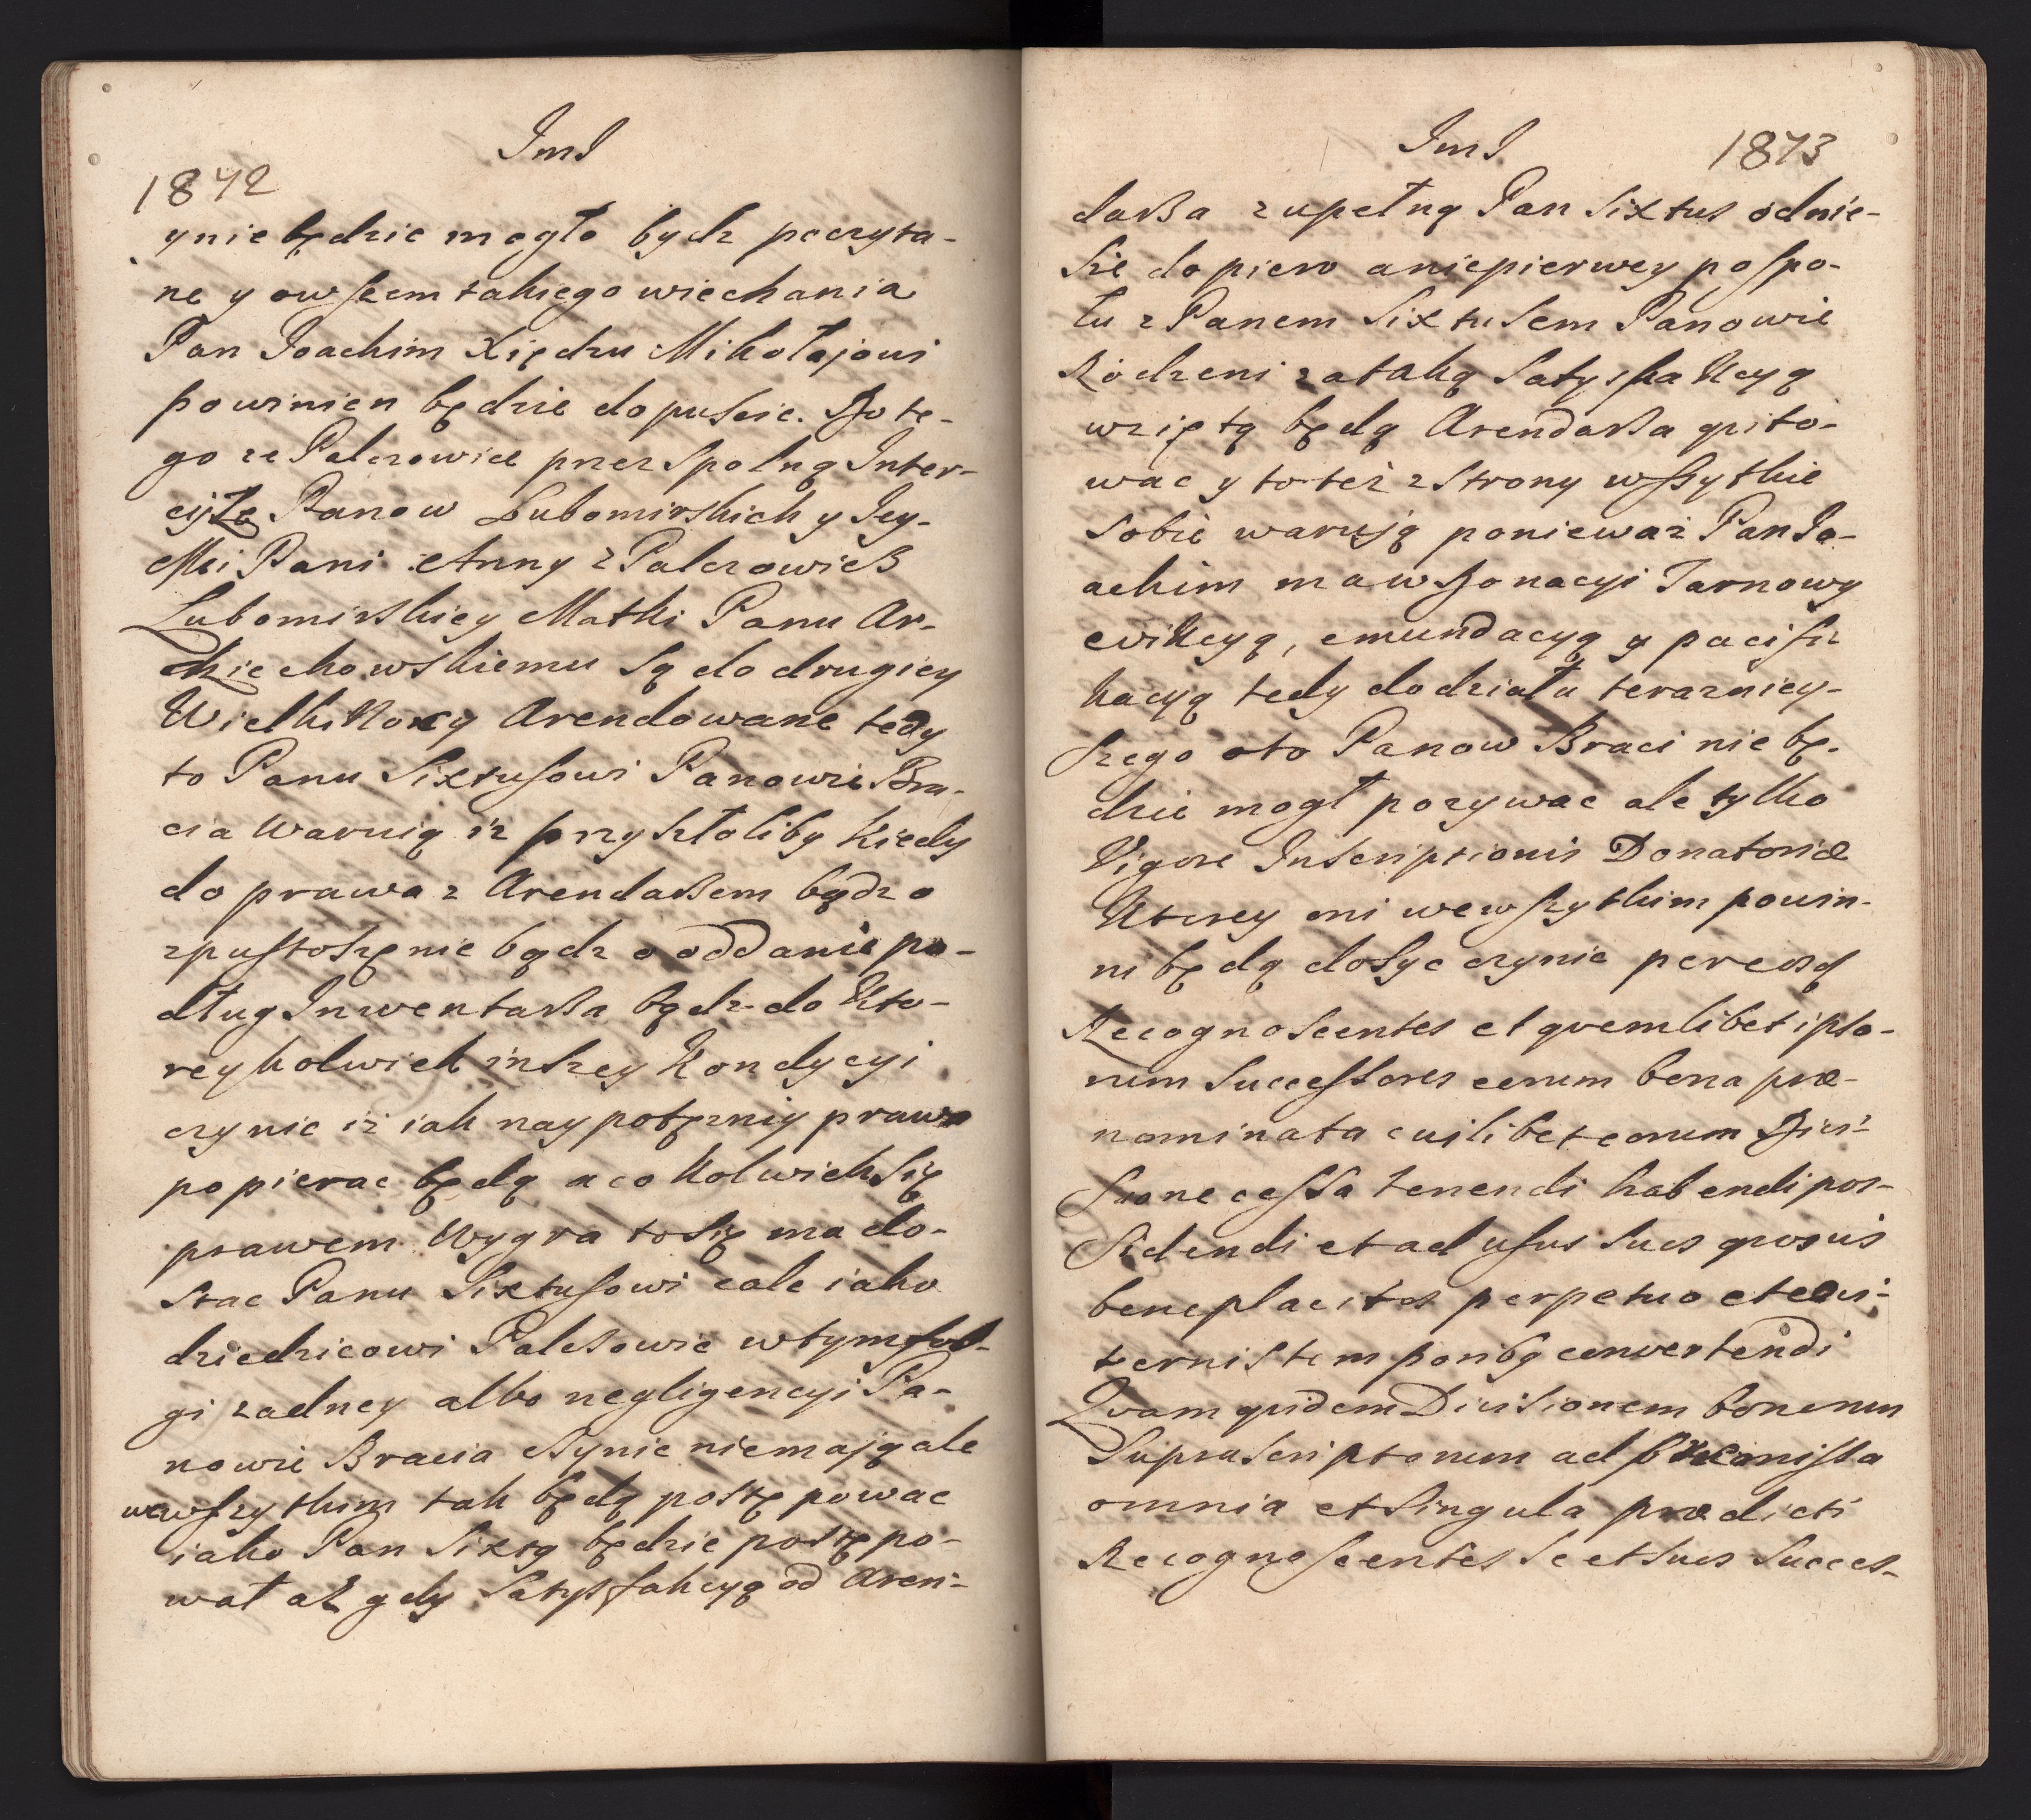 ImJ
1842
y nie będzie mogło bydz poczyta-
ne y owszem takiego wiechania
Pan Joachim Xiędzu Mikołajowi
powinien będzie dopuscic. Do te-
go ze Palczowice przez Spolną Inter-
cyzę Panow Lubomirskich y Jey-
Mci Pani Anny z Palczowiß
Lubomirskiey Matki Panu Ar-
ciechowskiemu Są do drugiey
Wielkikocy Arendowane tedy
to Panu Sixtusowi Panowie Bra-
cia waruią iz przyszłoliby kiedy
do prawa z Arendaßem bądz o
zpustoszęnie bądz o oddanie po-
dług Inwentaßa bądz do Kto-
reykolwiek inszey Kondycyi
czynic iz iak naypotęzniy prawa
popierac będą a cokolwiek Się
prawem wygra to Się ma do-
stac Panu Sixtusowi cale iako
dziedzicowi Palczowic w tym fol-
gi zadney albo negligencyi Pa-
nowie Bracia czynic niemają ale
wewszytkim tak będą postępowac
iako Pan Sixtą będzie postępo-
wał aż gdy Satysfakcyą od Aren-
ImJ
1843
daßa zupełną Pan Sixtus odnie-
Sie dopiero aniepierwey pospo-
łu z Panem Sixtusem Panowie
Rodzeni zataką Satysfakcyą
wziętą będą Arendaßa quito-
wac y to też z Strony wszytkie
Sobie warują ponieważ Pan Jo-
achim ma w Donacyi Tarnowy
evikcyą, emundacyą y pacifi
kacyą tedy do działu terazniey-
szego oto Panow Braci nie bę-
dzie mogł pozywac ale tylko
Vigore Inscriptionis Donatoriæ
Ktorey oni wewszytkim powin-
ni będą dosyc czynic pereosd
Recognoscentes et quemlibet ipso-
rum Successores eorum bona præ-
nominata cuilibet eorum Divi-
sione cessa tenendi habendi pos-
sidendi et ad usus suos quosvis
beneplacitos perpetuo et evi-
ternis temporibq convertendi
Quam quidem Divisionem bonorum
Supra Scriptorum ad
omnia et Singula prædicti
Recognoscentes Se et suos Succes-